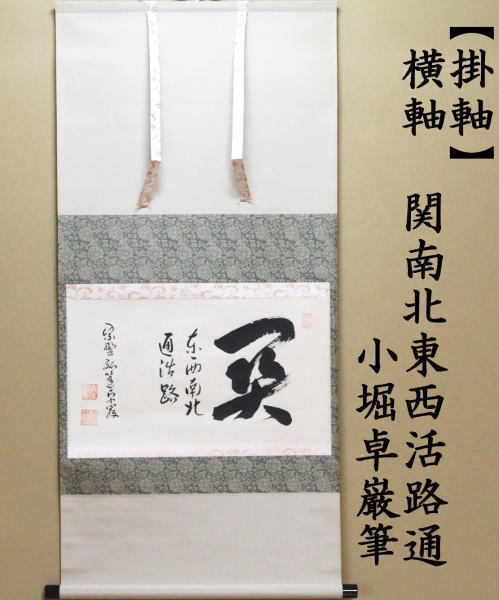 【掛軸】
横軸 関南北東西活路通
小堀卓巖筆
関
东西南北
通活路